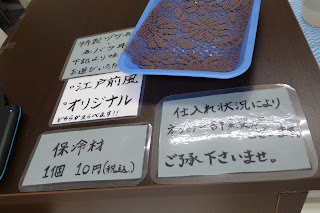 特製ヅケ
下記より味
お選びいただ
・江戸前風
・オリジナル
どちらかえらべます!!
保冷材
1個 10円(税込)
仕入れ状況により
ご了承下さいませ。